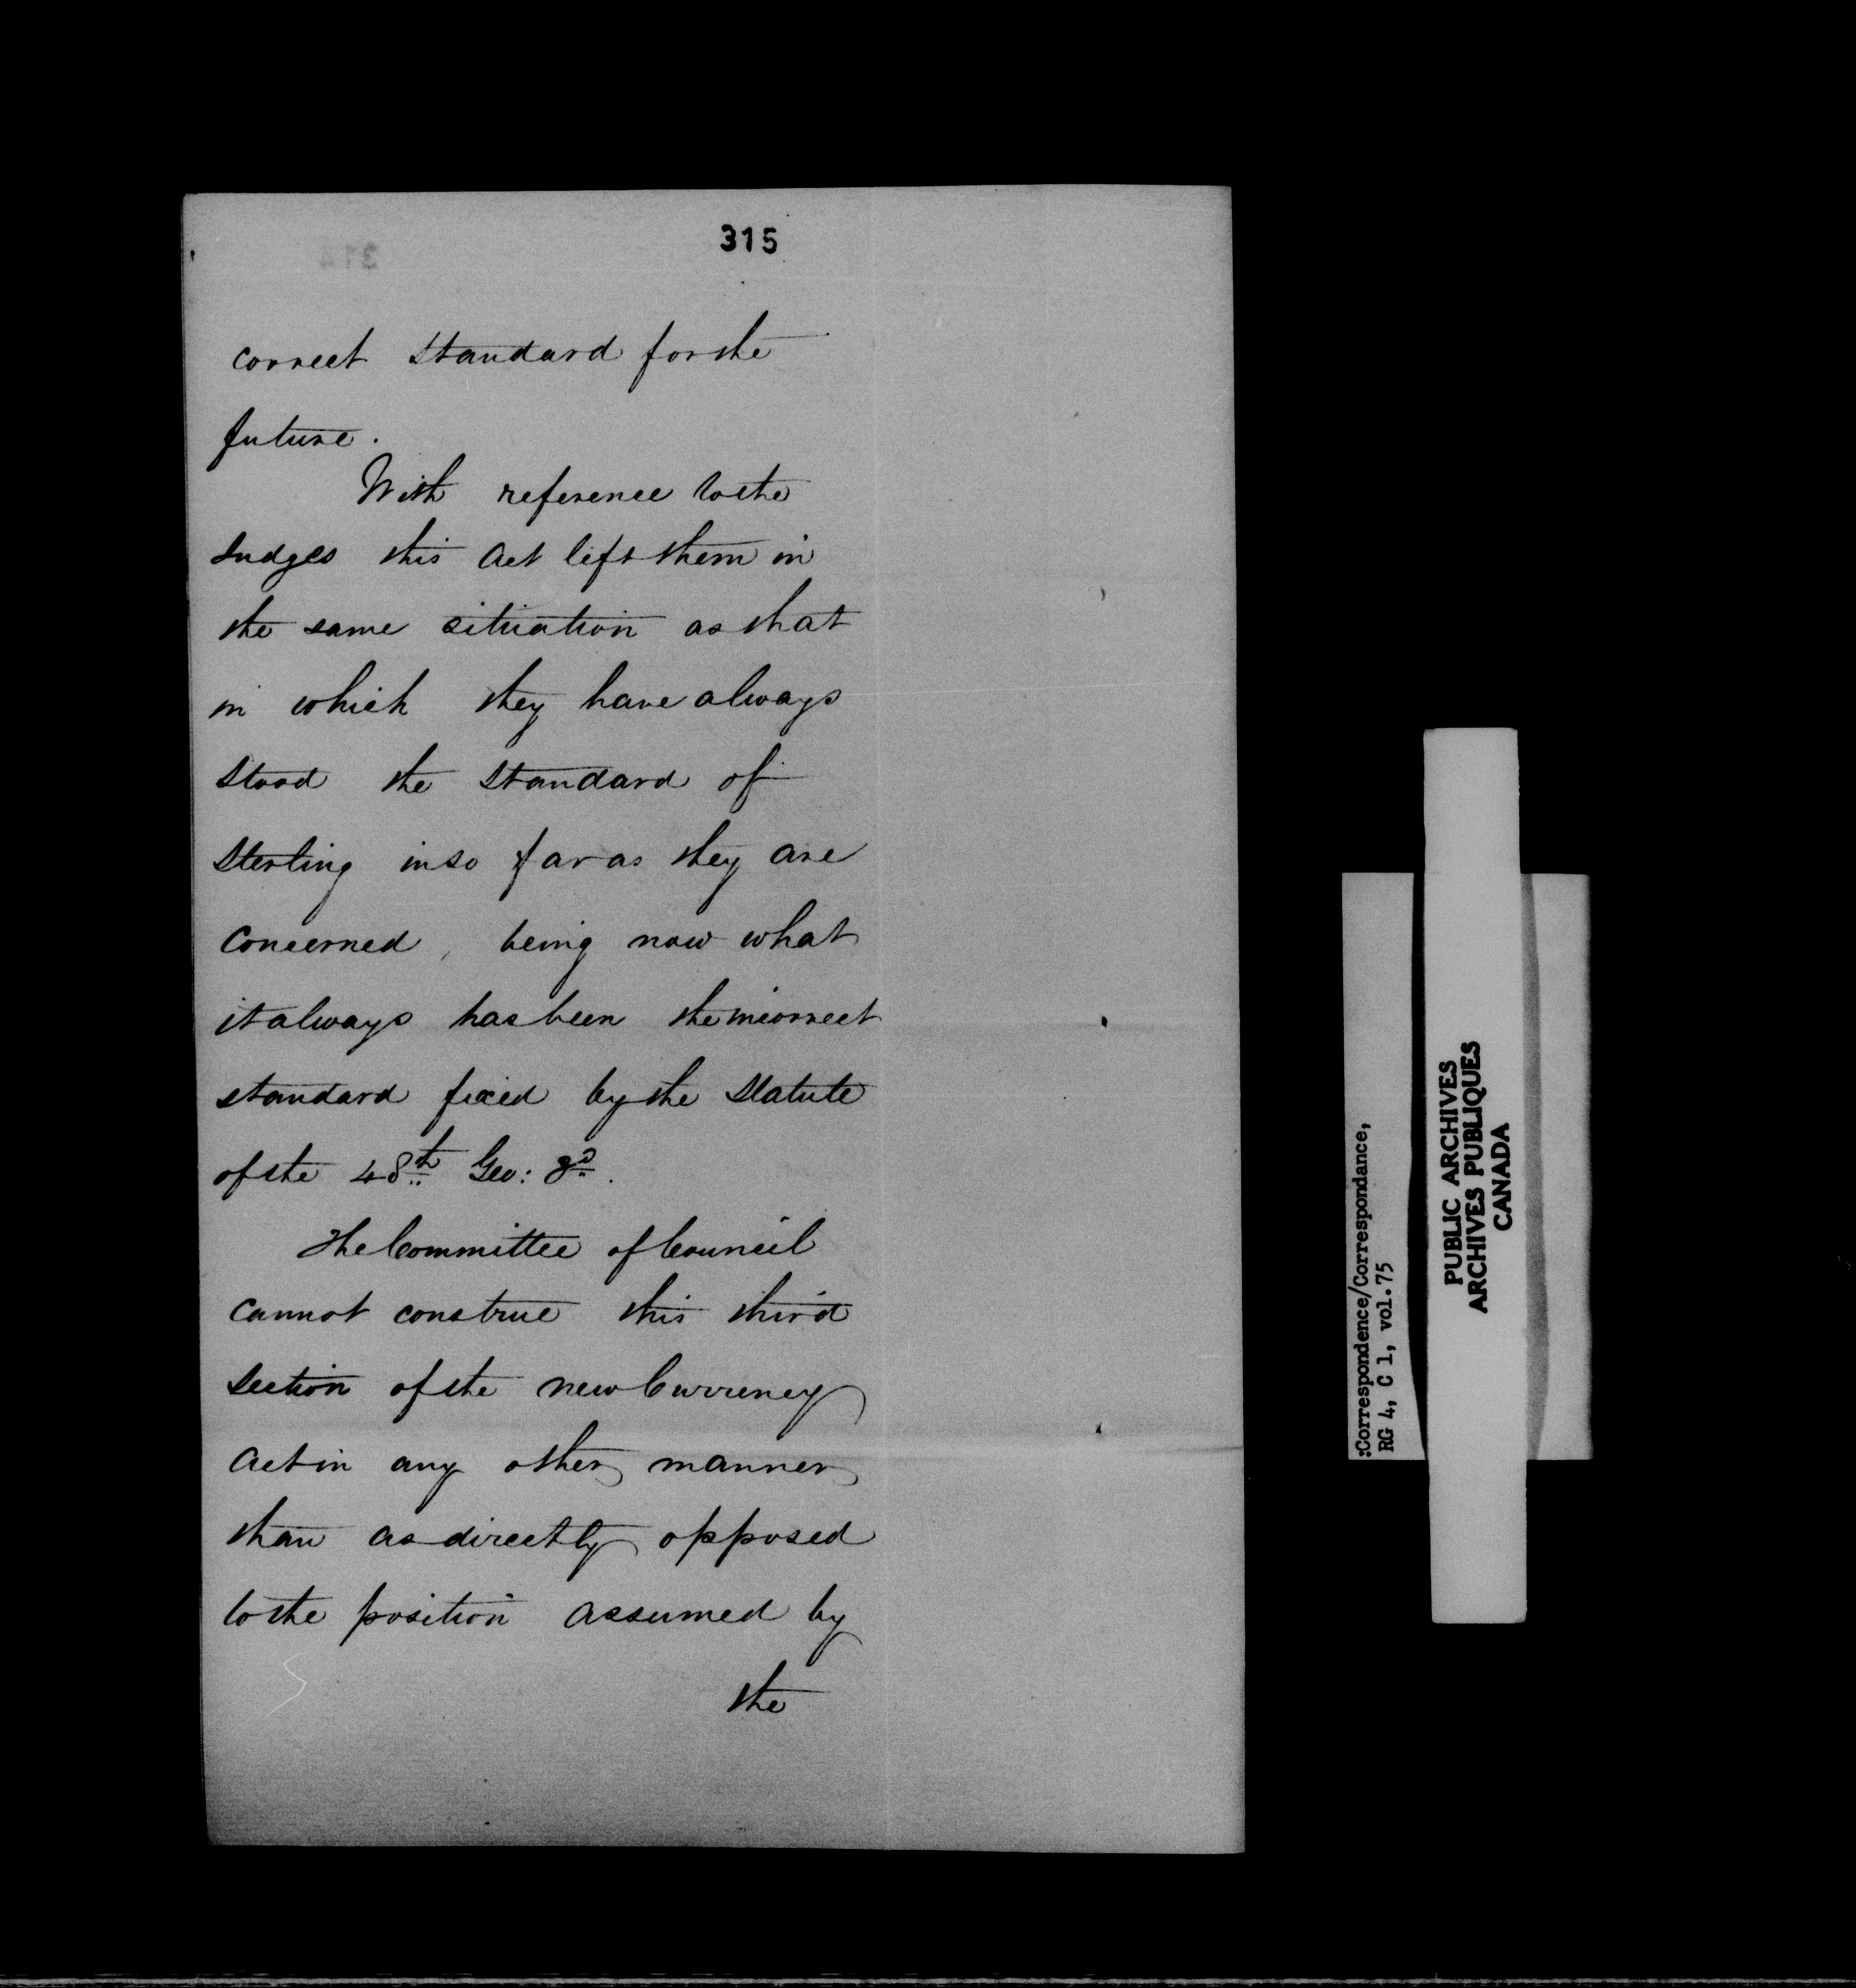 315
correct standard for the
future.
With reference to the
Judges this Act left them in
the same situation as that
in which they have always
stood the standard of
Sterling in so far as they are
concerned, being now what
it always has been the incorrect
standard fixed by the Statute
of the 48th Geo: 3d.
The Committee of Council
cannot construe this third
section of the new Currency
Act in any other manner
than as directly opposed
to the position assumed by
the
:Correspondence/Correspondance,
RG 4, C 1, vol.75
PUBLIC ARCHIVES
ARCHIVES PUBLIQUES
CANADA